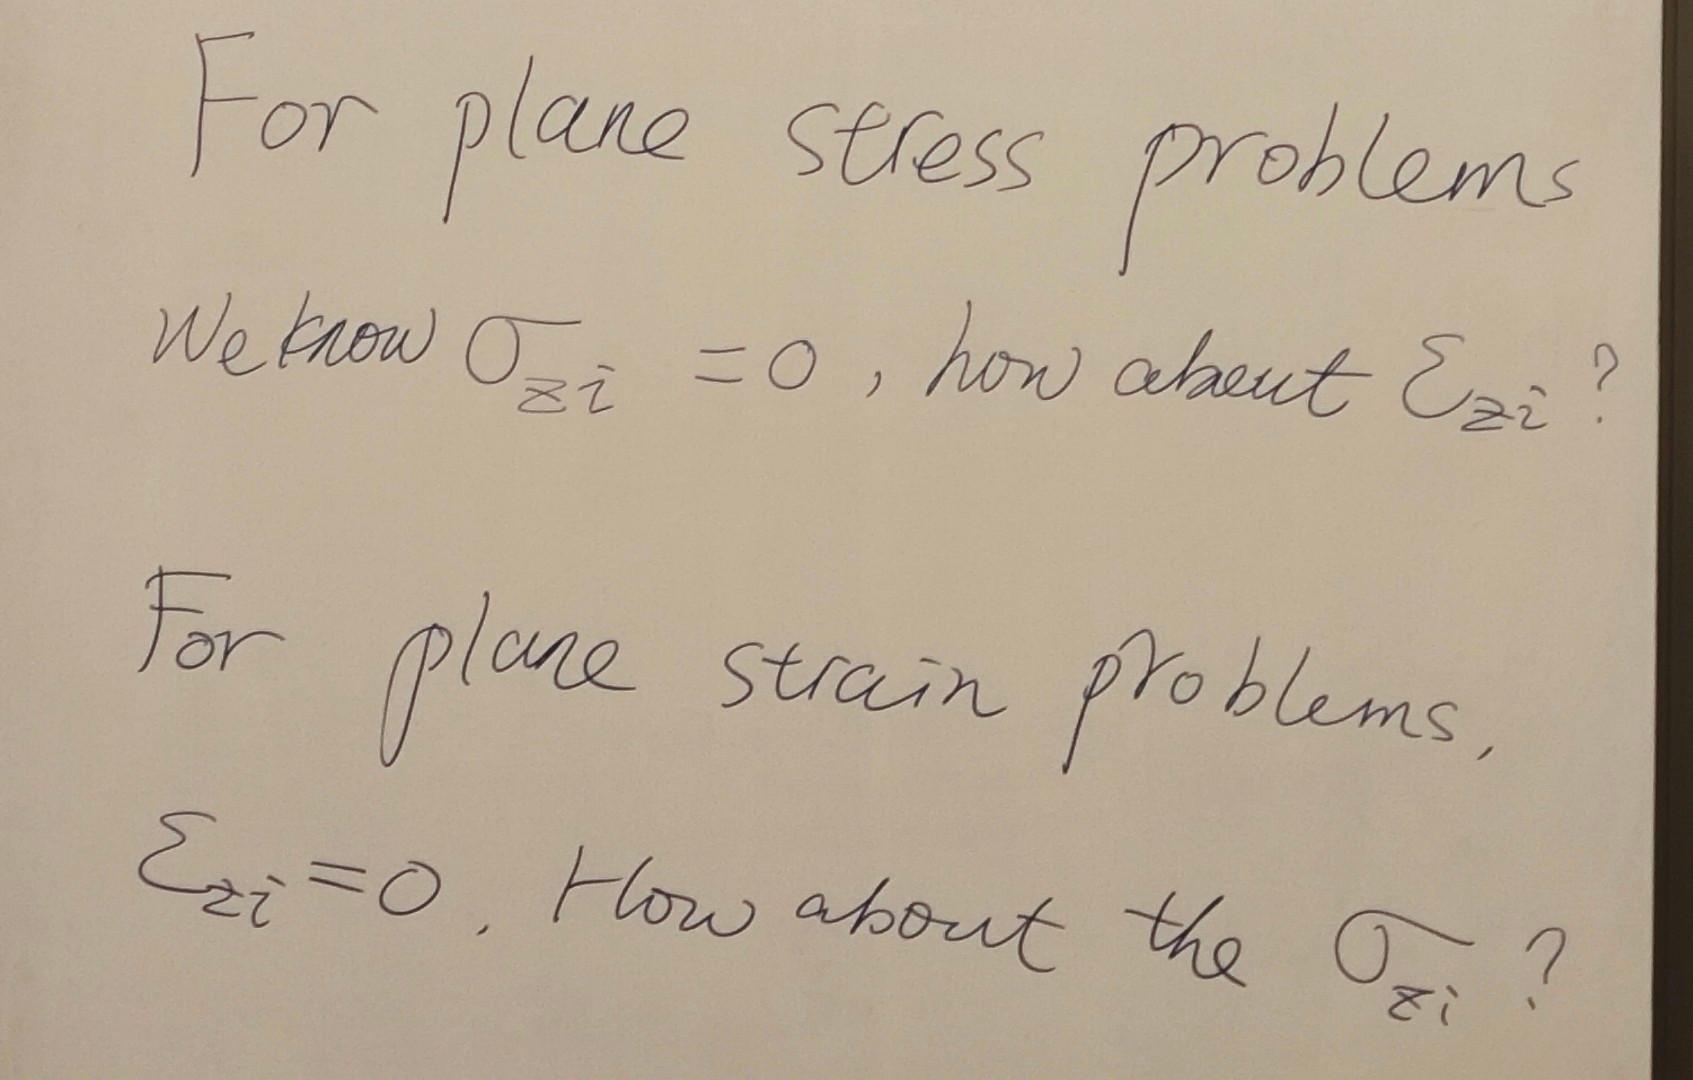 For plane stress problems
We know σ_zi = 0, how about ε_zi?
For plane strain problems,
ε_zi = 0. How about the σ_zi?